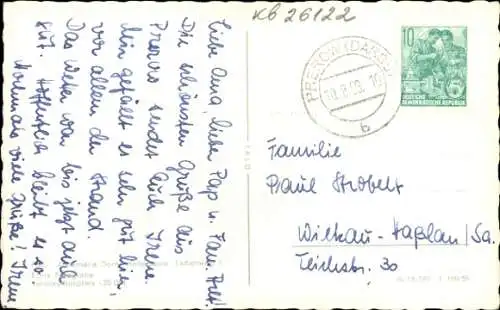 Kb 26122
Liebe Oma, lieber Pap u. Fam. 
Die schönsten Grüße aus
Prerow sendet Euch Irene.
Mir gefällt es sehr gut hier,
vor allem der Strand.
Das Wetter war bis jetzt auch
gut. Hoffentlich bleibt es so
Nochmals viele Grüße! Irene
PREROW (DARSS)
b
10
DEUTSCHE
DEMOKRATISCHE REPUBLIK
Familie
Paul Strobelt
Wilkau-Haßlau/Sa.
Teichstr. 30